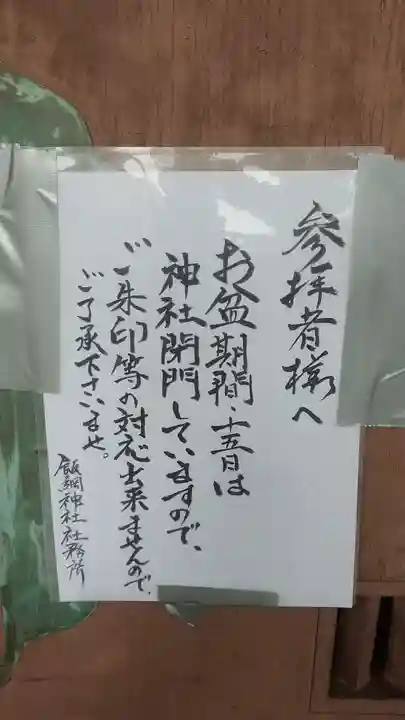 参拝者様へ
お盆期間・十五日は
神社閉門していますので、
ご朱印等の対応出来ませんので、
ご了承下さいませ。
飯綱神社社務所